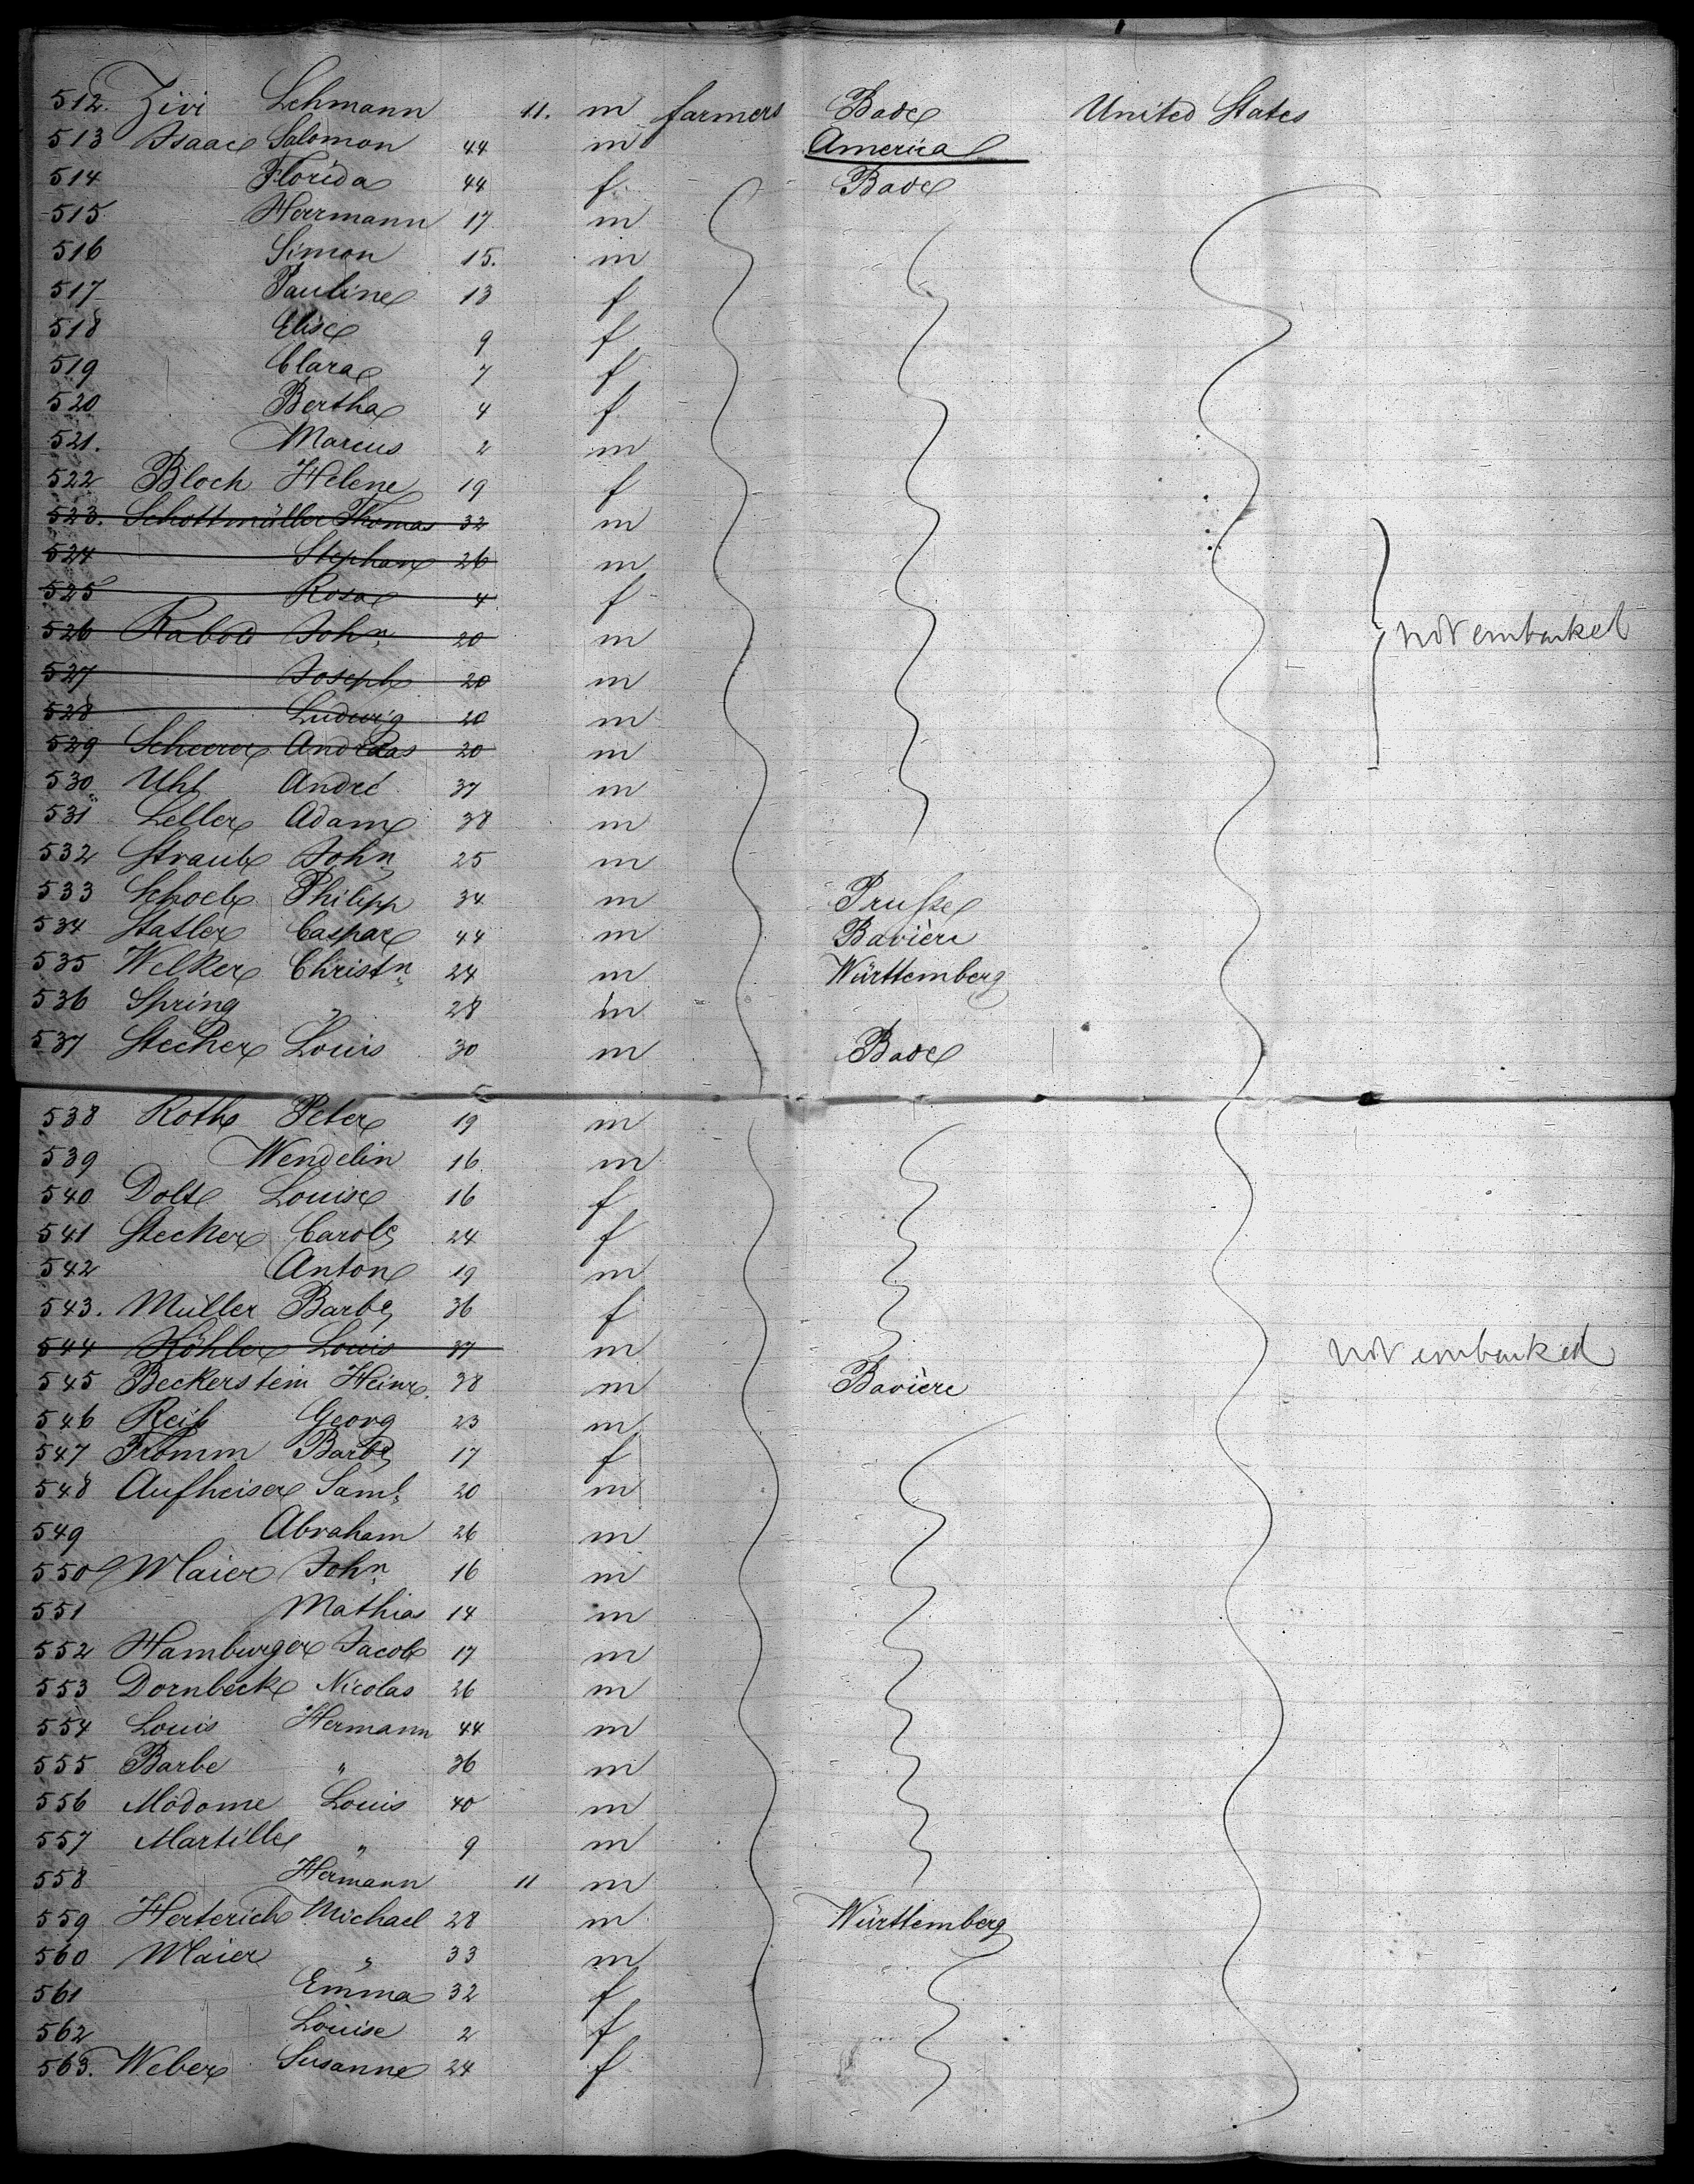 512. Zivi Lehmann 11. m farmers Bade United States
513 Isaac Salomon 44 m America
514 Florida 44 f. Bade
515 Herrmann 17 m
516 Simon 15. m
517 Pauline 13 f
518 Elise 9 f
519 Clara 7 f
520 Bertha 4 f
521. Marcus 2 m
522 Bloch Helene 19 f
523. Schottmüller Thomas 32 m
524 Stephan 26 m
525 Rosa 4 f
526 Rabold John 20 m not embarked
527 Joseph 20 m
528 Ludwig 20 m
529 Scheerer Andreas 20 m
530 Uhl André 37 m
531 Leller Adam 38 m
532 Straub John 25 m
533 Schoeb Philipp 34 m Prusse
534 Statler Caspar 44 m Bavière
535 Welker Christn 24 m Württemberg
536 Spring " 28 m
537 Stecher Louis 30 m Bade
538 Roth Peter 19 m
539 Wendelin 16 m
540 Dolt Louise 16 f
541 Stecker Carole 24 f
542 Anton 19 m
543. Muller Barbe 36 f
544 Köhler Louis 37 m not embarked
545 Beckerstein Heinr. 38 m Bavière
546 Reiß Georg 23 m
547 Fromm Barbe 17 f
548 Aufheiser Saml 20 m
549 Abraham 26 m
550 Maier John 16 m
551 Mathias 14 m
552 Hamburger Jacob 17 m
553 Dornbeck Nicolas 26 m
554 Louis Hermann 44 m
555 Barbe " 36 m
556 Modome Louis 40 m
557 Martille " 9 m
558 Hermann 11 m
559 Herterich Michael 28 m Württemberg
560 Maier " 33 m
561 Emma 32 f
562 Louise 2 f
563. Weber Susanne 24 f